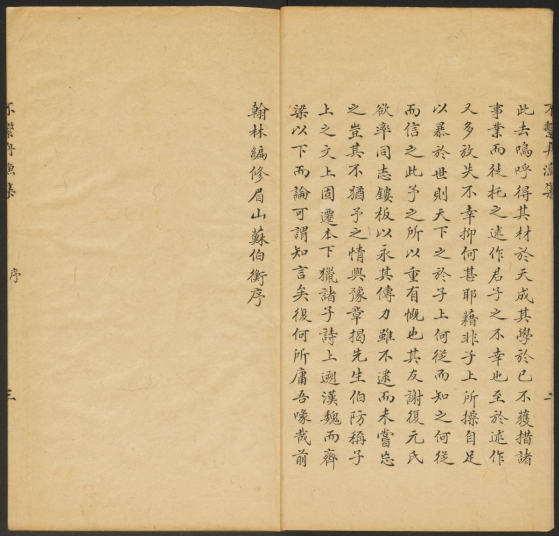 此去嗚呼得其材於天成其學於己不獲措諸
事業而徒托之述作君子之不幸也至於述作
又多放失不幸抑何甚耶藉非子上所操自足
以暴於世則天下之於子上何從而知之何從
而信之此予之所以重有慨也其友謝復元氏
欲率同志鏤板以永其傳力雖不逮而未嘗忘
之豈其不猶予之情與豫章揭先生伯防稱子
上之文上固遷本下獵諸子詩上遡漢魏而齊
梁以下而論可謂知言矣復何所庸吾喙哉前
翰林編修眉山蘇伯衡序
不繫舟漁集
序
三